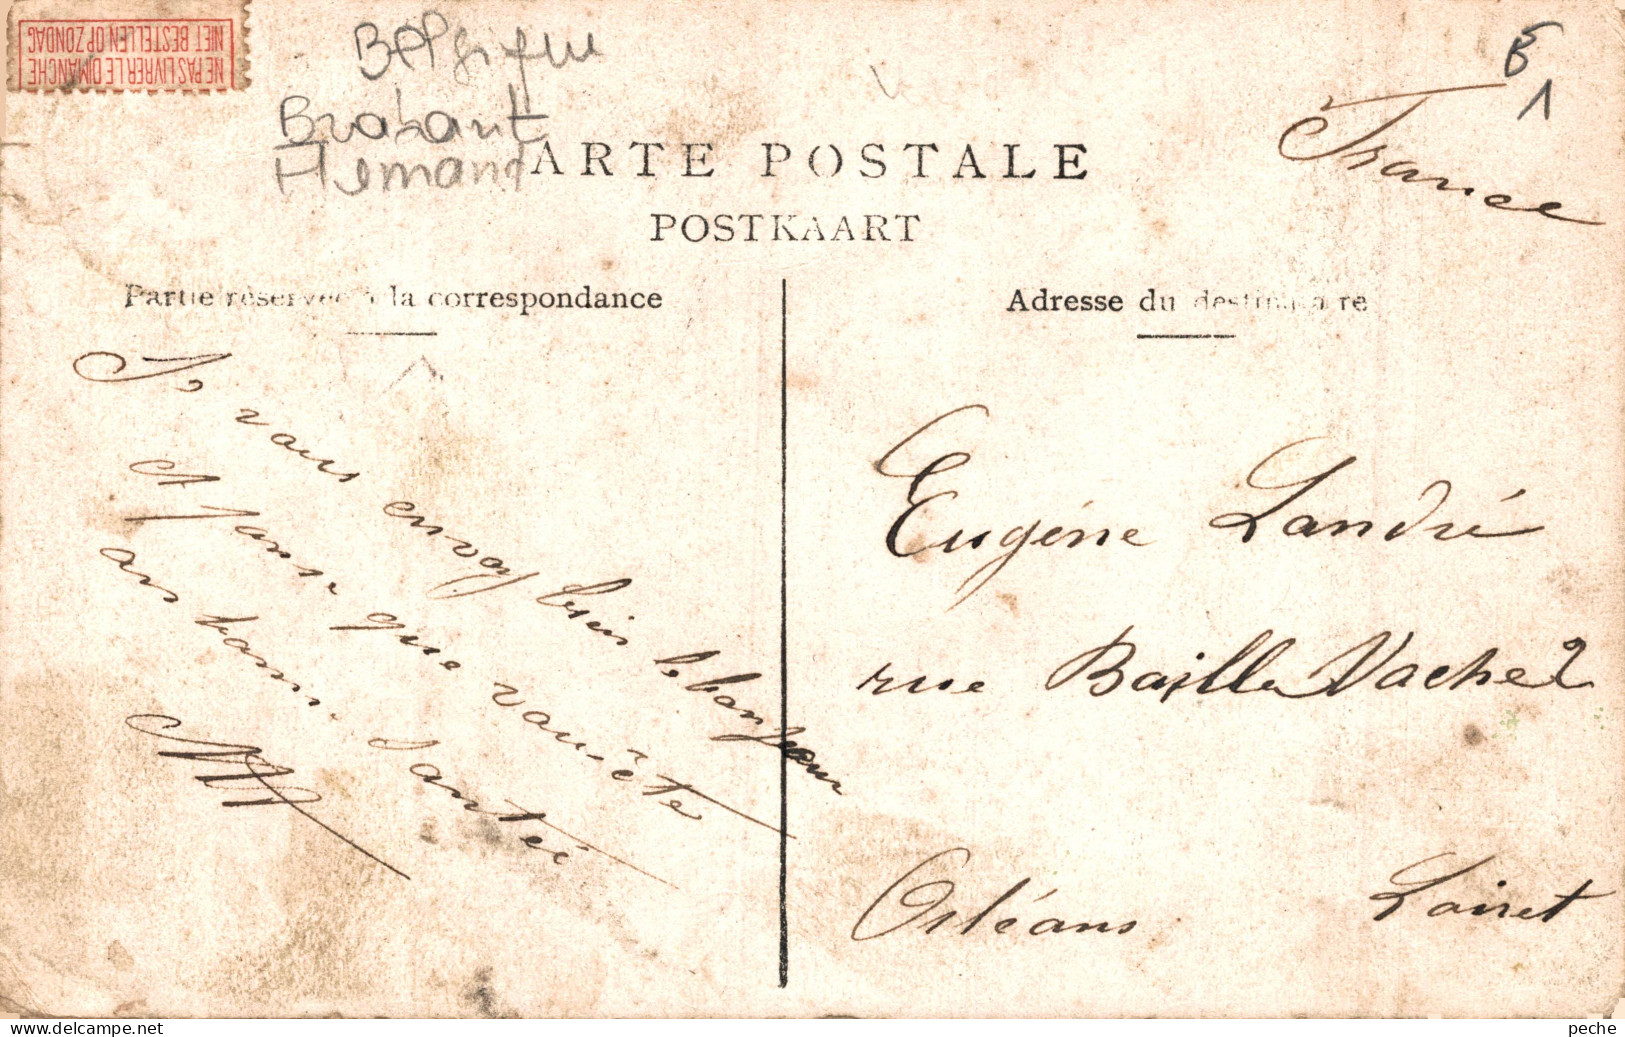 NE PAS LIVRER LE DIMANCHE
NIET BESTELLEN OP ZONDAG
Belgique
Brabant
Flamand
B
1
France
CARTE POSTALE
POSTKAART
Partie réservée à la correspondance
Adresse du destinataire
Je vous envoy bien le bonjour
et panse que vous ête
en bonne santée
Eugène Landré
rue Baille Vache 2
Orléans Loiret
www.delcampe.net
peche